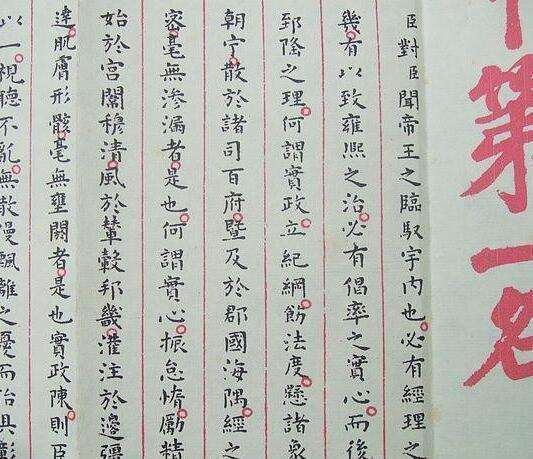 第一名
臣對臣聞帝王之臨馭宇內也必有經理之
幾有以致雍熙之治必有倡率之實心而後
郅隆之理何謂實政立紀綱飭法度懸諸象
朝宁散於諸司百府暨及於郡國海隅經之
密毫無滲漏者是也何謂實心振怠惰勵精
始於宮闈穆清風於輦轂邦畿灌注於邊疆
違肌膚形骸毫無壅閼者是也實政陳則臣
以一視聽不亂無散漫飄離之憂而治具彰